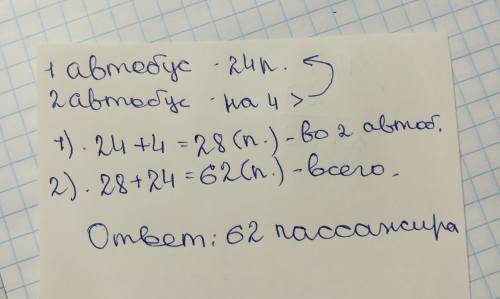 1 автобус - 24п.
2 автобус - на 4 >
1). 24+4=28(п.)-во 2 автоб.
2). 28+24=62(п.)-всего.
Ответ: 62 пассажира